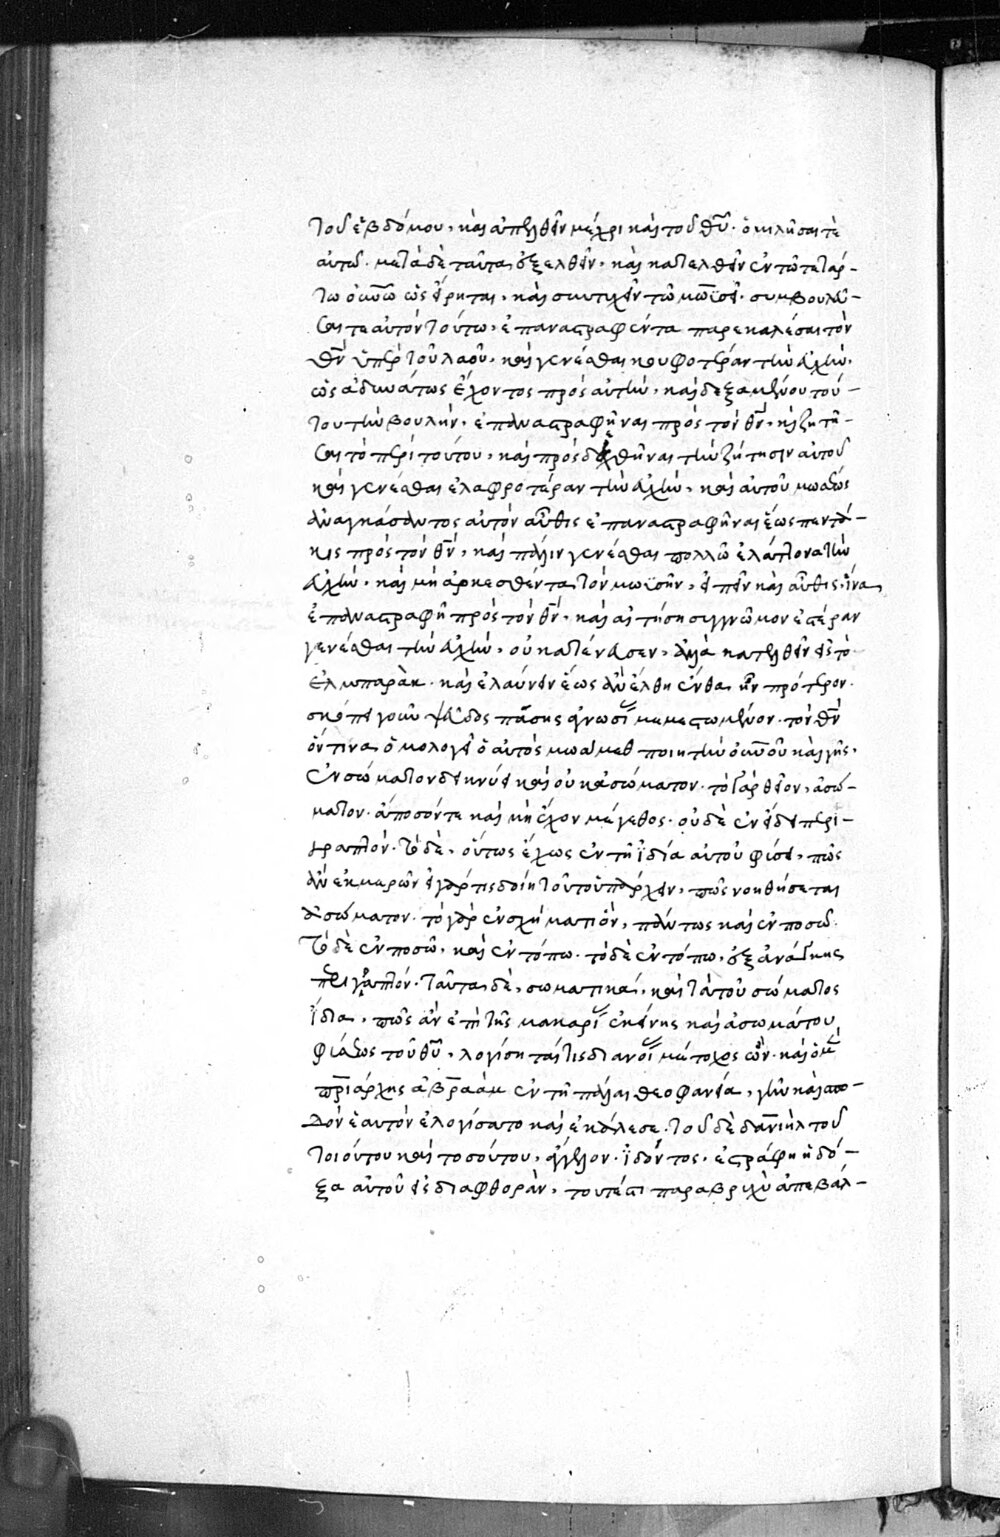 τοῦ ἑβδόμου, καὶ ἀπελθεῖν μέχρι καὶ τοῦ θῦ. ὁμιλῆσαι τὲ
αὐτῶ. μετὰ δὲ ταῦτα ἐξελθεῖν, καὶ κατελθεῖν ἐν τῶ τετάρ-
τω οὐνῶ ὡς εἴρηται, καὶ συντυχεῖν τῶ μωϋσεῖ. συμβουλεῦ-
σαι τε αὐτὸν τούτω, ἐπαναστραφέντα παρεκαλέσαι τὸν
θν ὑπὲρ τοῦ λαοῦ, καὶ γενέσθαι κουφοτέραν τὴν εὐχὴν,
ὡς ἀδυνάτως ἔχοντος πρὸς αὐτὴν, καὶ δεξαμένου τού-
του τὴν βουλὴν, ἐπαναστραφῆναι πρὸς τὸν θν, καὶ ζητῆ-
σαι τὸ περὶ τούτου, καὶ προσδεχθῆναι τὴν ζήτησιν αὐτοῦ
καὶ γενέσθαι ἐλαφροτέραν τὴν εὐχὴν, καὶ αὐτοῦ μωσέως
ἀναγκάσαντος αὐτὸν αὖθις ἐπαναστραφῆναι ἕως πεντά-
κις πρὸς τὸν θν, καὶ πάλιν γενέσθαι πολλῶ ἐλάττονα τὴν
εὐχὴν, καὶ μὴ ἀρκεσθέντα τὸν μωϋσῆν, εἰπεῖν καὶ αὖθις, ἵνα
ἐπαναστραφῆ πρὸς τὸν θν, καὶ αἰτήση συγγνωμονεστέραν
γενέσθαι τὴν εὐχὴν, οὐ κατένευσεν, ἀλλὰ κατελθεῖν εἰς τὸ
ἐλμπαρὰκ. καὶ ἐλαύνειν ἕως ἂν ἔλθη ἔνθα ἦν πρότερον.
σκόπει γοῦν ψεῦδος πάσης ἀγνωσί μεμεστωμένον. τὸν θν
ὅντινα ὁμολογεῖ ὁ αὐτὸς μωάμεθ ποιητὴν οὐνοῦ καὶ γῆς,
ἐνσώματον δεικνύει καὶ οὐκ ἀσώματον. τὸ γὰρ θεῖον, ἀσώ-
ματον. ἄποσόν τε καὶ μὴ ἔχον μέγεθος. οὐδὲ ἐν εἴδει περι-
γραπτόν. τὸ δὲ, οὕτως ἔχως ἐν τῆ ἰδία αὐτοῦ φύσει, πῶς
ἂν ἐκ μερῶν εἰ γάρ τις δοίη τοῦτο ὑπάρχειν, πῶς νοηθήσεται
ἀσώματον. τὸ γὰρ ἐν σχήματι ὂν, πάντως καὶ ἐν ποσῶ.
τὸ δὲ ἐν ποσῶ, καὶ ἐν τόπω. τὸ δὲ ἐν τόπω, ἐξ ἀνάγκης
περιγραπτόν. ταῦτα δὲ, σωματικά, καὶ τὰ τοῦ σώματος
ἴδια, πῶς ἂν ἐπὶ τῆς μακαρί ἐκείνης καὶ ἀσωμάτου
φύσεως τοῦ θῦ, λογίσηταί τις διανοί μέτοχος ὤν. καὶ ὁ μὲν
πριάρχης ἀβραὰμ ἐν τῆ πάλαι θεοφανεία, γῆν καὶ σπο-
δὸν ἑαυτὸν ἐλογίσατο καὶ ἐκάλεσε. τοῦ δὲ δανιὴλ τοῦ
τοιούτου καὶ τοσούτου, ἄγγελον ἰδόντος, ἐστράφη ἡ δό-
ξα αὐτοῦ εἰς διαφθορὰν, τουτέστι παραβραχὺ ἀπεβάλ-